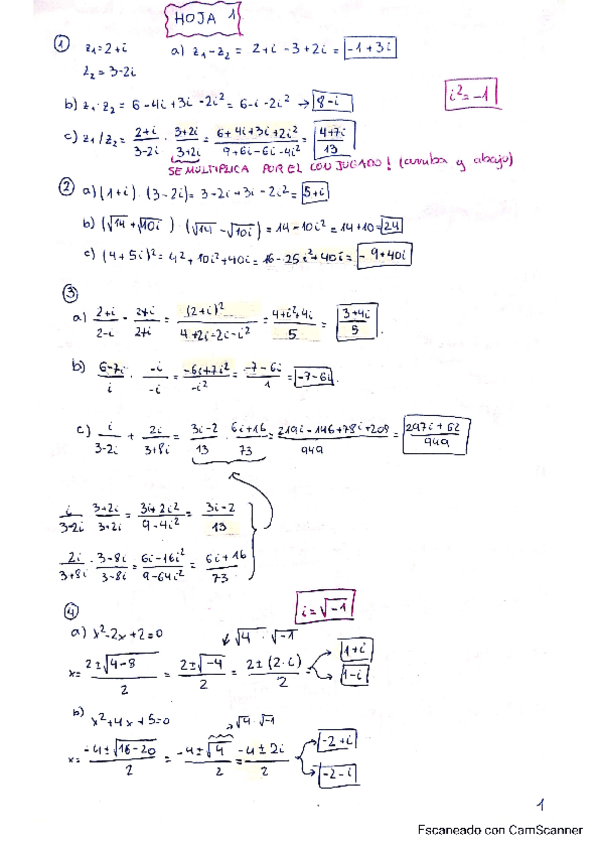 HOJA 1
① z₁=2+i a) z₁-z₂ = 2+i-3+2i = -1+3i
z₂=3-2i
b) z₁·z₂ = 6-4i+3i-2i² = 6-i-2i² → 8-i
i²=-1
c) z₁/z₂ = (2+i)/(3-2i) · (3+2i)/(3+2i) = (6+4i+3i+2i²)/(9+6i-6i-4i²) = (4+7i)/13
SE MULTIPLICA POR EL CONJUGADO! (arriba y abajo)
② a) (1+i)·(3-2i) = 3-2i+3i-2i² = 5+i
b) (√14+√10i)·(√14-√10i) = 14-10i² = 14+10 = 24
c) (4+5i)² = 4²+10i²+40i = 16-25i²+40i = -9+40i
③
a) (2+i)/(2-i) · (2+i)/(2+i) = (2+i)²/(4+2i-2i-i²) = (4+i²+4i)/5 = (3+4i)/5
b) (6-7i)/i · (-i)/(-i) = (-6i+7i²)/(-i²) = (-7-6i)/1 = -7-6i
c) i/(3-2i) + 2i/(3+8i) = (3i-2)/13 · (6i+16)/73 = (219i-146+78i+208)/949 = (297i+62)/949
i/(3-2i) · (3+2i)/(3+2i) = (3i+2i²)/(9-4i²) = (3i-2)/13
2i/(3+8i) · (3-8i)/(3-8i) = (6i-16i²)/(9-64i²) = (6i+16)/73
④ i=√-1
a) x²-2x+2=0 √4·√-1
x = (2±√4-8)/2 = (2±√-4)/2 = (2±(2·i))/2 1+i
1-i
b) x²+4x+5=0 √4·√-1
x = (-4±√16-20)/2 = (-4±√4)/2 = (-4±2i)/2 -2+i
-2-i
1
Escaneado con CamScanner